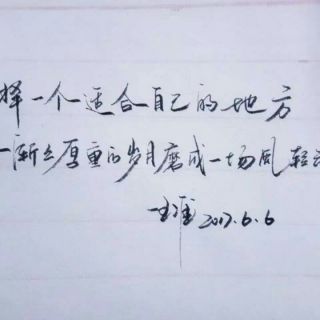 择一个适合自己的地方
渐渐厚重的岁月磨成一场风轻
2017.6.6